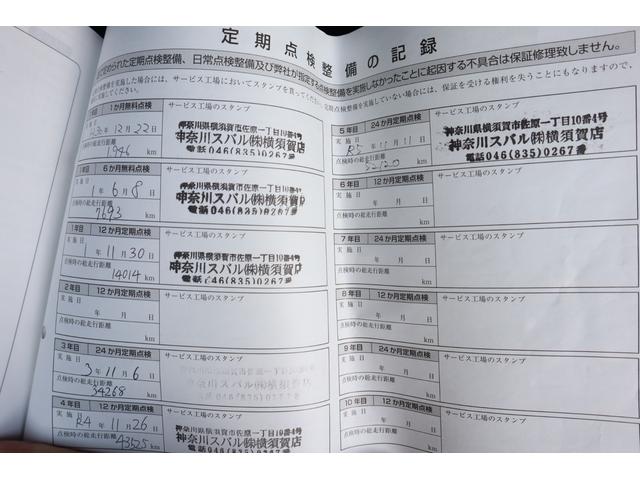 定期点検整備の記録
定められた定期点検整備、日常点検整備及び弊社が指定する点検整備を実施しなかったことに起因する不具合は保証修理致しません。
を実施した場合には、サービス工場においてスタンプを貰ってください。定期点検整備を実施していない場合は、保証を受ける権利を失うこともありますので、
実施してください。
1か月無料点検
サービス工場のスタンプ
12月22日
1946 km
神奈川県横須賀市佐原一丁目10番4号
神奈川スバル㈱横須賀店
電話046(835)0267番
6か月無料点検
サービス工場のスタンプ
1年6月8日
点検時の総走行距離
7693 km
神奈川県横須賀市佐原一丁目10番4号
神奈川スバル㈱横須賀店
電話046(835)0267番
1年目 12か月定期点検
サービス工場のスタンプ
実施日
1年11月30日
点検時の総走行距離
14014 km
神奈川県横須賀市佐原一丁目10番4号
神奈川スバル㈱横須賀店
電話046(835)0267番
2年目 12か月定期点検
サービス工場のスタンプ
実施日
年 月 日
点検時の総走行距離
km
3年目 24か月定期点検
サービス工場のスタンプ
実施日
3年11月6日
点検時の総走行距離
34268 km
神奈川スバル㈱横須賀店
4年目 12か月定期点検
サービス工場のスタンプ
実施日
R4年11月26日
点検時の総走行距離
43525 km
神奈川県横須賀市佐原一丁目10番4号
神奈川スバル㈱横須賀店
5年目 24か月定期点検
サービス工場のスタンプ
実施日
R5年11月11日
点検時の総走行距離
km
神奈川県横須賀市佐原一丁目10番4号
神奈川スバル㈱横須賀店
電話046(835)0267番
6年目 12か月定期点検
サービス工場のスタンプ
実施日
年 月 日
点検時の総走行距離
km
7年目 24か月定期点検
サービス工場のスタンプ
実施日
年 月 日
点検時の総走行距離
km
8年目 12か月定期点検
サービス工場のスタンプ
実施日
年 月 日
点検時の総走行距離
km
9年目 24か月定期点検
サービス工場のスタンプ
実施日
年 月 日
点検時の総走行距離
km
10年目 12か月定期点検
サービス工場のスタンプ
実施日
年 月 日
点検時の総走行距離
km